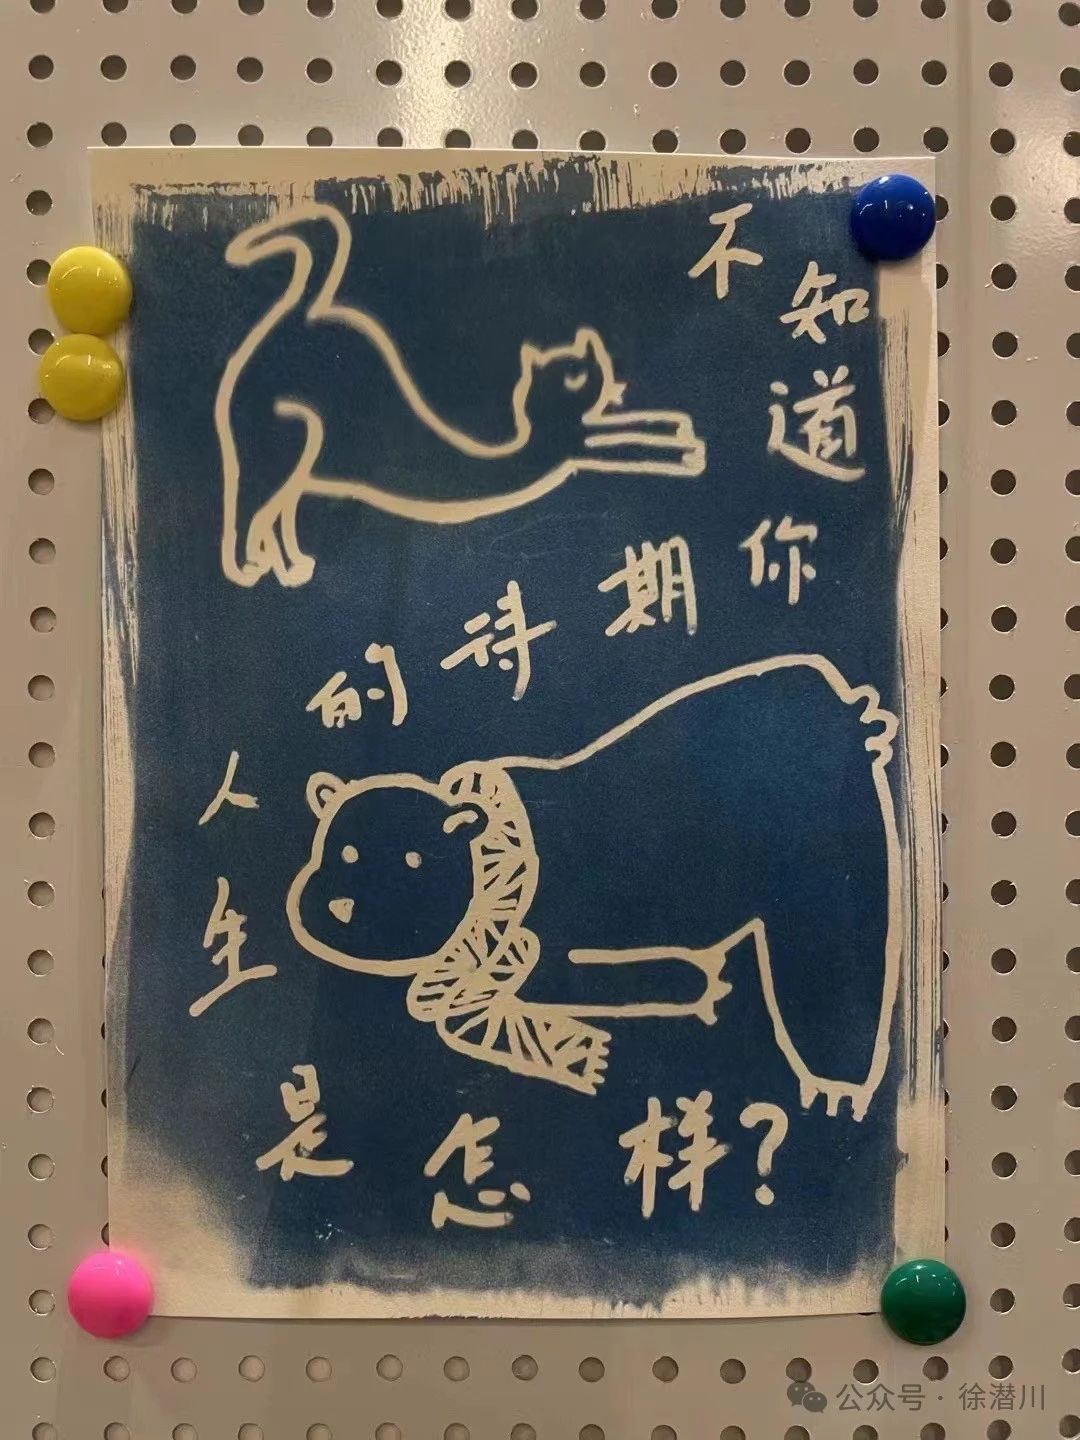 不知道你期待的人生是怎样?
公众号·徐潜川